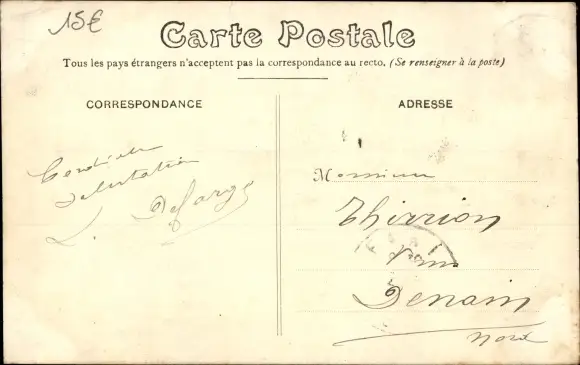 15€
Carte Postale
Tous les pays étrangers n'acceptent pas la correspondance au recto. (Se renseigner à la poste)
CORRESPONDANCE
ADRESSE
Cordiale
Salutation
L. Defarge
Monsieur
Thirrion
Denain
Nord